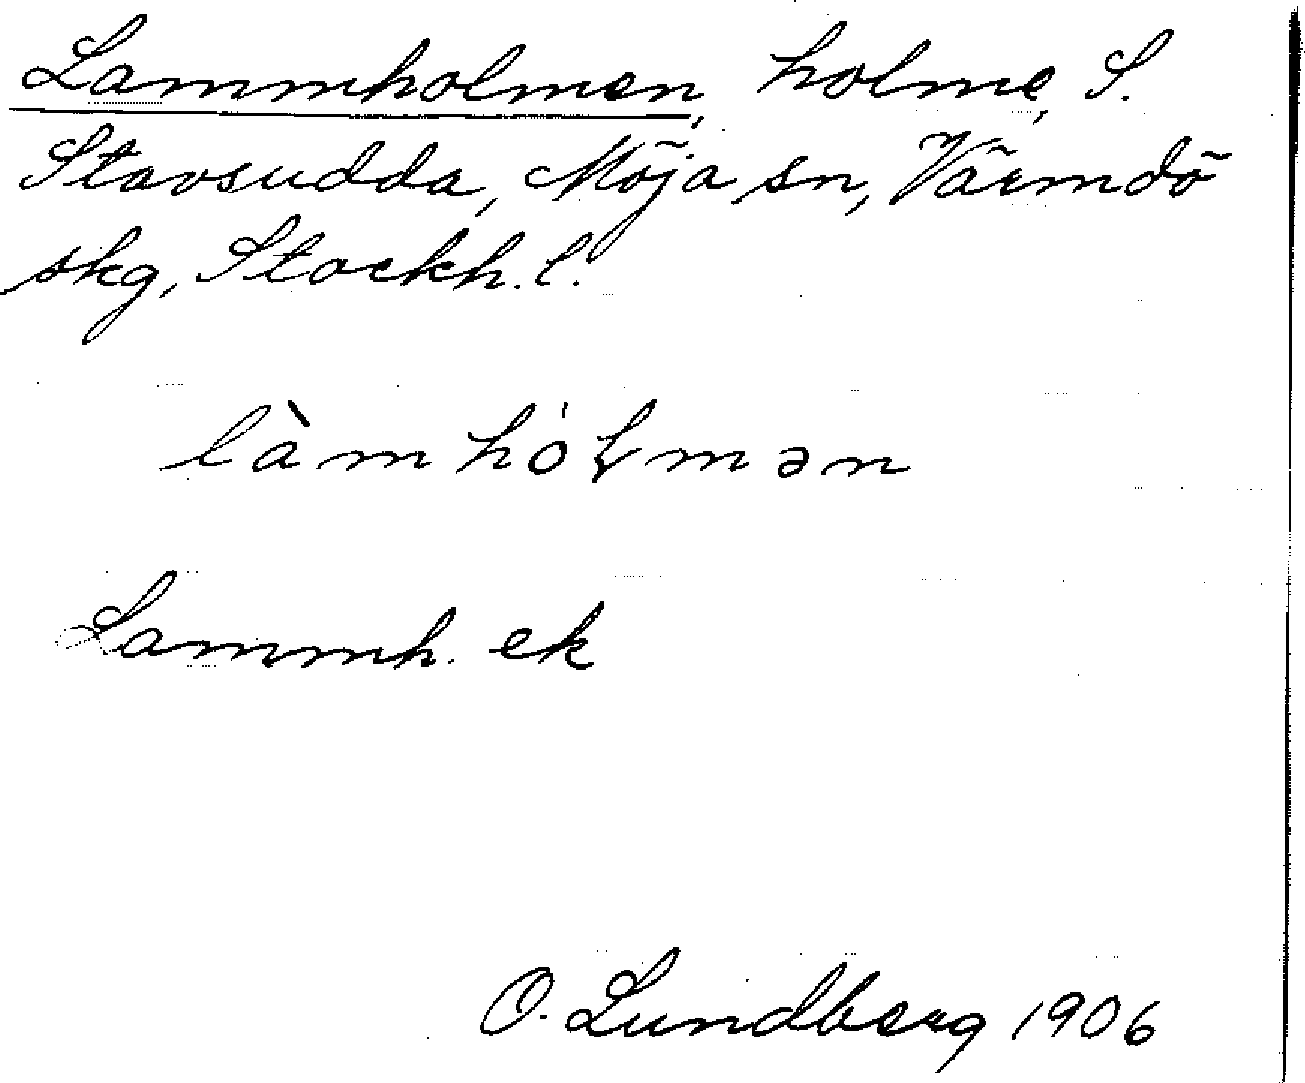 Lammholmen, holme, S.
Stavsudda, Möja sn, Värmdö
skg, Stockh. l.
làmhòɫmən
Lammh. ek
O. Lundberg 1906